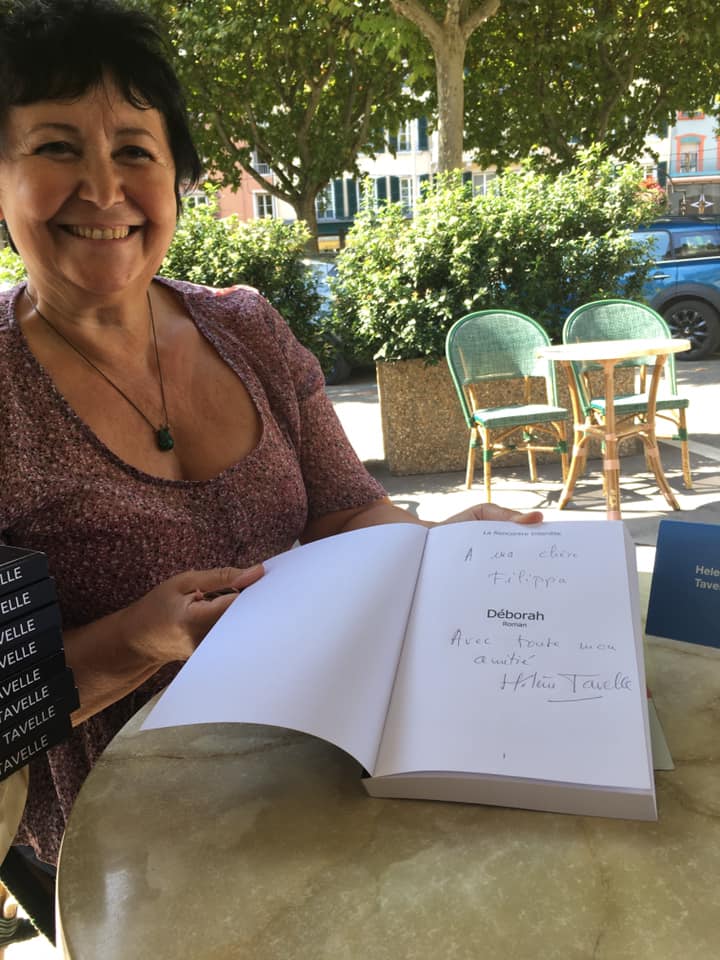 La Rencontre Interdite
A ma chère
Filippa
Déborah
Roman
Avec toute mon
amitié
Hélène Tavelle
1
Hele
Tave
LLE
AVELLE
TAVELLE
TAVELLE
TAVELLE
TAVELLE
TAVELLE
TAVELLE